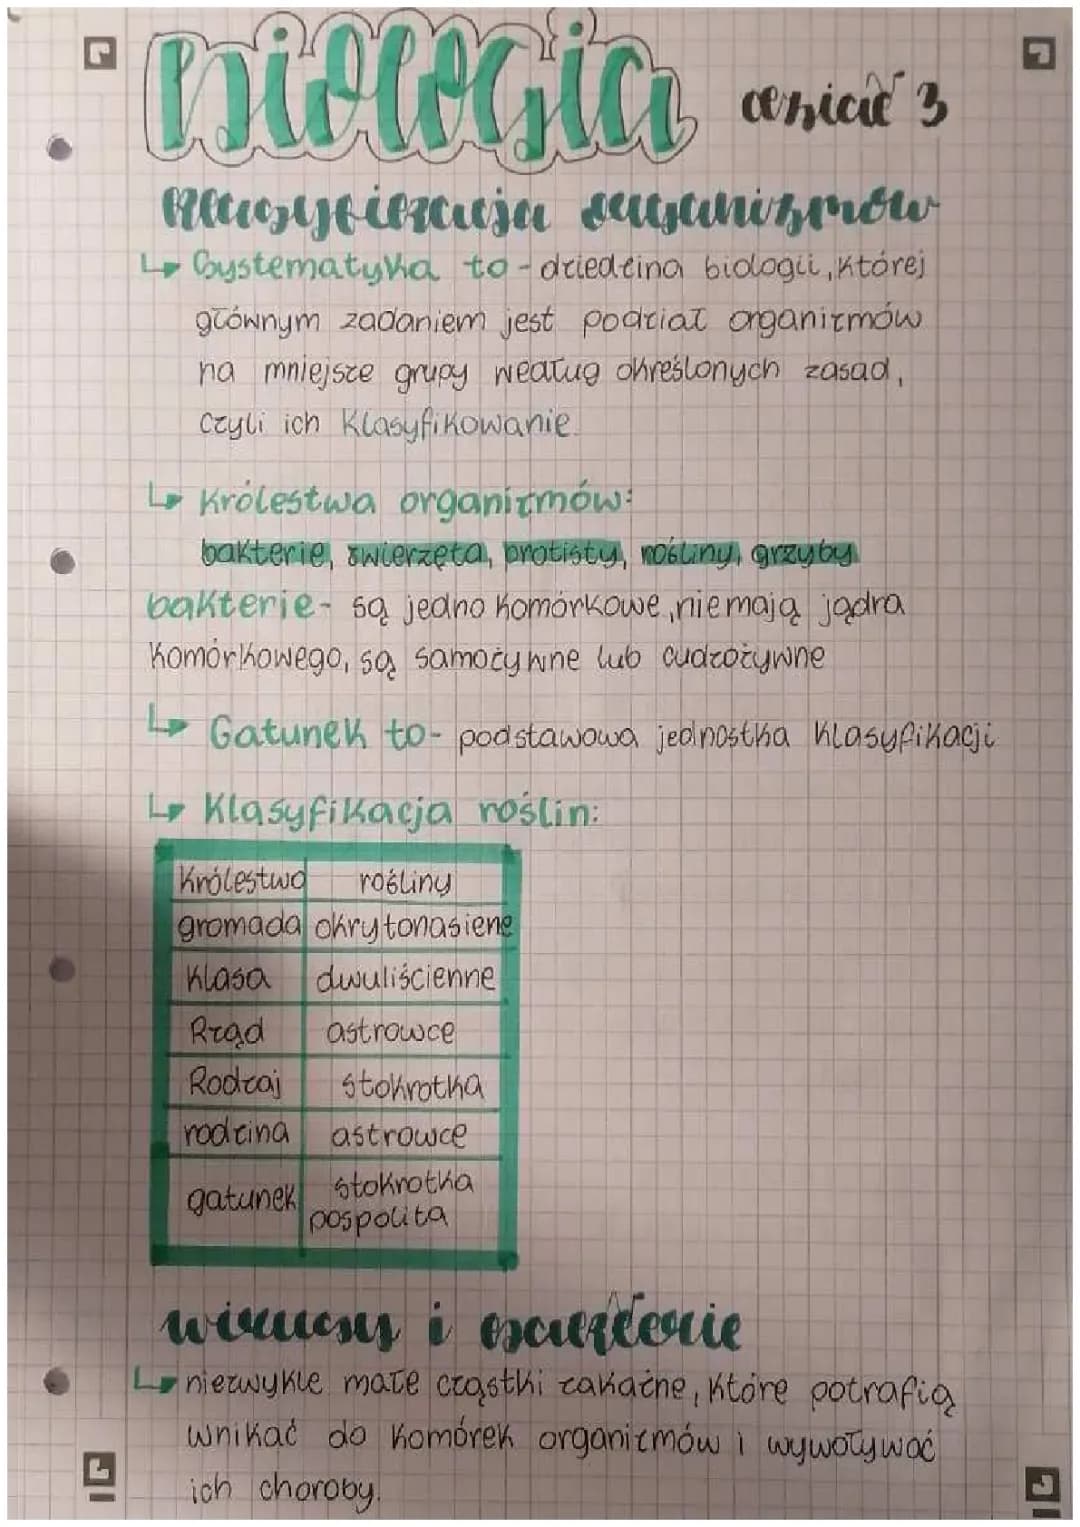 Biologia część 3
klasyfikacja organizmów
↳ Systematyka to - dziedzina biologii, której
głównym zadaniem jest podział organizmów
na mniejsze grupy według określonych zasad,
czyli ich klasyfikowanie.
↳ Królestwa organizmów:
bakterie, zwierzęta, protisty, rośliny, grzyby
bakterie - są jedno komórkowe, nie mają jądra
komórkowego, są samożywne lub cudzożywne
↳ Gatunek to - podstawowa jednostka klasyfikacji
↳ Klasyfikacja roślin:
Królestwo rośliny
gromada okrytonasiene
Klasa dwuliścienne
Rząd astrowce
Rodzaj stokrotka
rodzina astrowce
gatunek stokrotka
pospolita
wirusy i bakterie
↳ niezwykle małe cząstki zakaźne, które potrafią
wnikać do komórek organizmów i wywoływać
ich choroby.